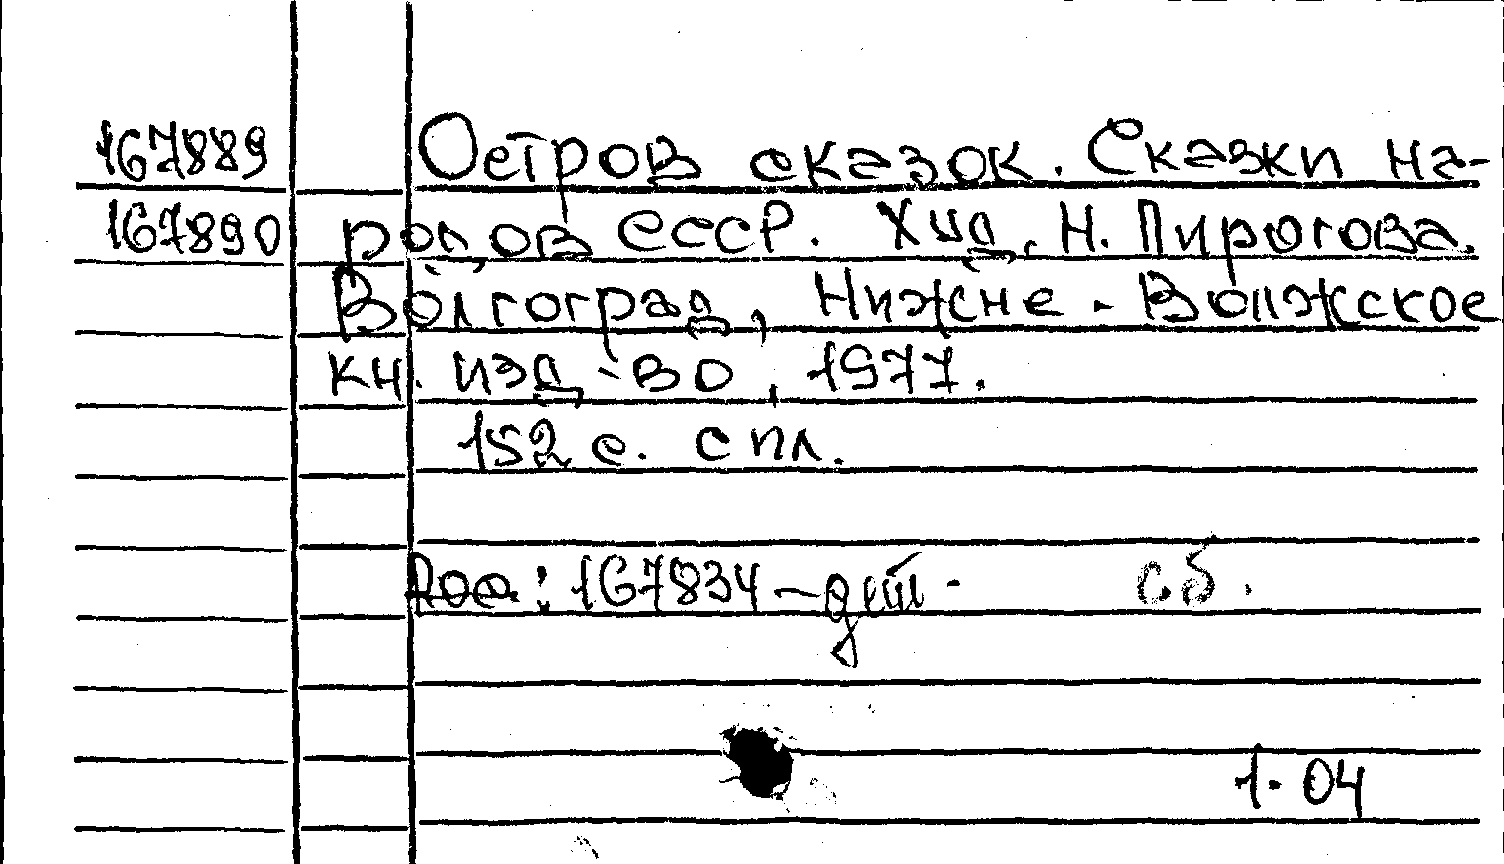 167889 Остров сказок. Сказки на-
167890 родов СССР. Худ. Н. Пирогова.
Волгоград, Нижне-Волжское
кн. изд-во, 1977.
152 с. с ил.
167834 - дет. сб.
1.04